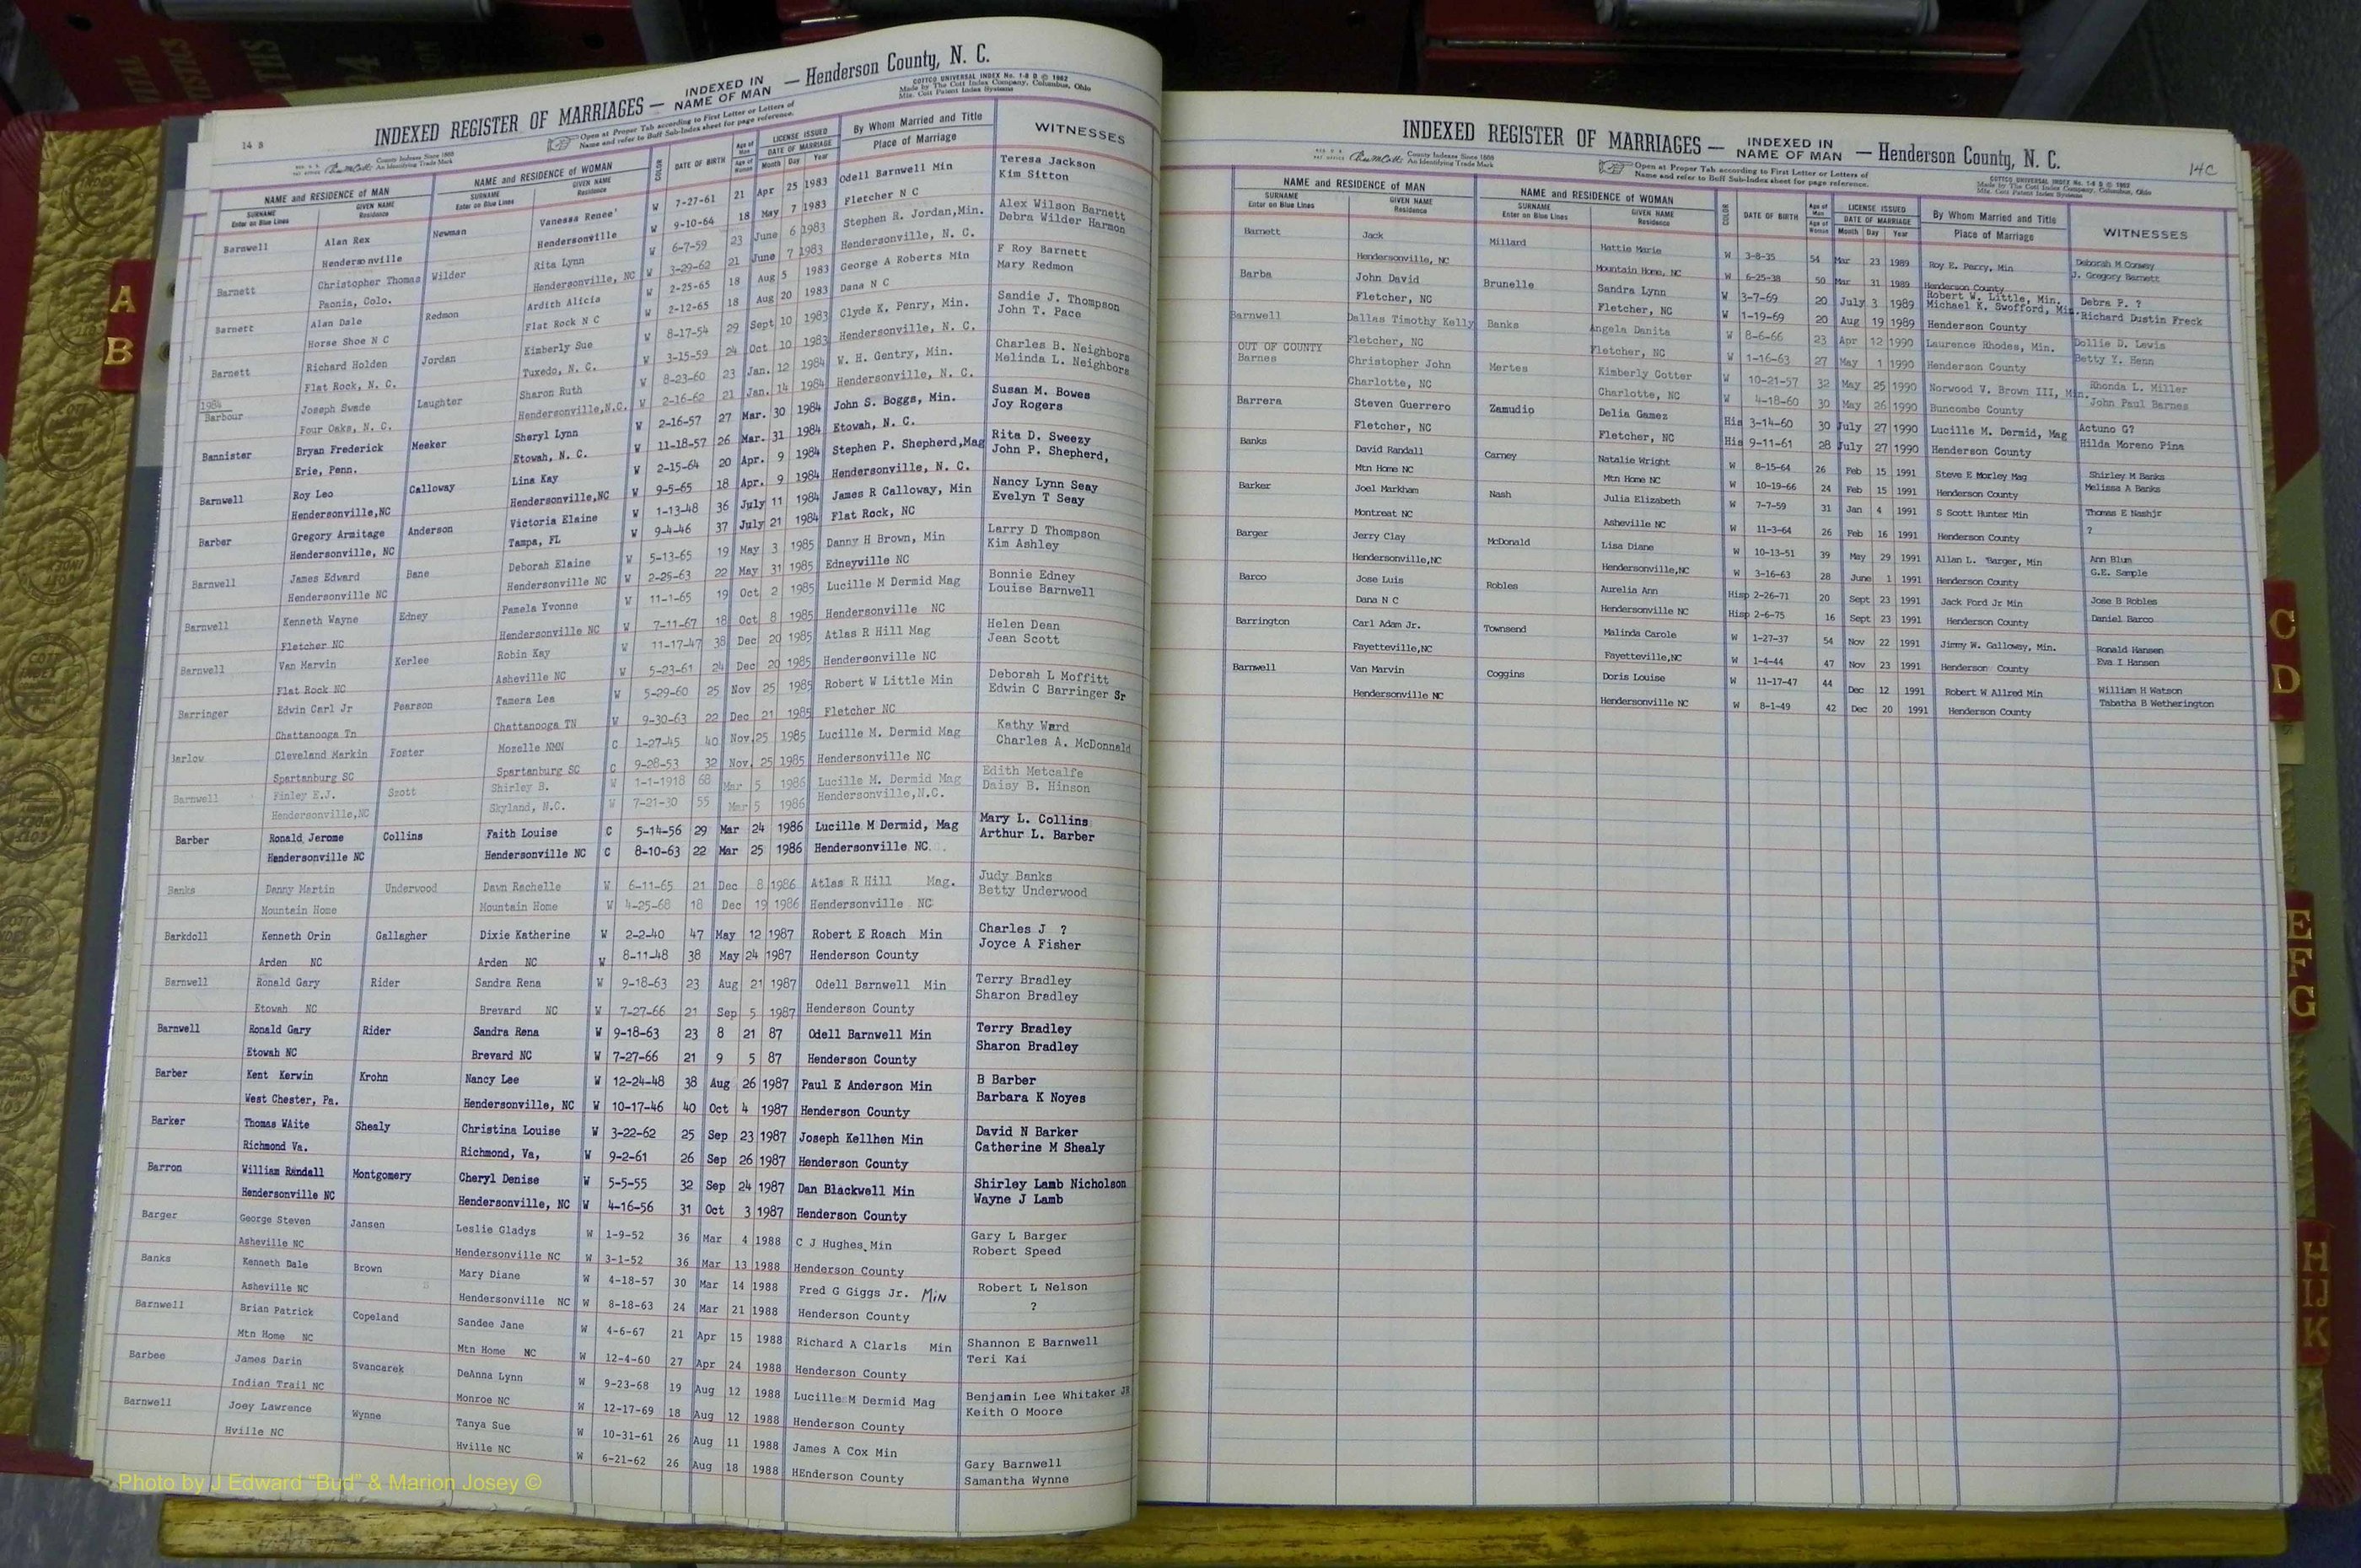 14 B
INDEXED REGISTER OF MARRIAGES — INDEXED IN NAME OF MAN — Henderson County, N. C.
County Indexes Since 1888
An Identifying Trade Mark
Open at Proper Tab according to First Letter or Letters of
Name and refer to Buff Sub-Index sheet for page reference.
COTTCO UNIVERSAL INDEX No. 1-8 B © 1962
Made by The Cott Index Company, Columbus, Ohio
Mfs. Cott Patent Index Systems
NAME and RESIDENCE OF MAN NAME and RESIDENCE OF WOMAN COLOR DATE OF BIRTH Age of Man LICENSE ISSUED By Whom Married and Title WITNESSES
SURNAME GIVEN NAME SURNAME GIVEN NAME Age of Woman DATE OF MARRIAGE Place of Marriage
Enter on Blue Lines Residence Enter on Blue Lines Residence Month Day Year
Barnwell Alan Rex Newman Vanessa Renee' W 7-27-61 21 Apr 25 1983 Odell Barnwell Min Teresa Jackson
Hendersonville Hendersonville W 9-10-64 18 May 7 1983 Fletcher N C Kim Sitton
Barnett Christopher Thomas Wilder Rita Lynn W 6-7-59 23 June 6 1983 Stephen R. Jordan,Min. Alex Wilson Barnett
Paonia, Colo. Hendersonville, NC W 3-29-62 21 June 7 1983 Hendersonville, N. C. Debra Wilder Harmon
Barnett Alan Dale Redmon Ardith Alicia W 2-25-65 18 Aug 5 1983 George A Roberts Min F Roy Barnett
Horse Shoe N C Flat Rock N C W 2-12-65 18 Aug 20 1983 Dana N C Mary Redmon
Barnett Richard Holden Jordan Kimberly Sue W 8-17-54 29 Sept 10 1983 Clyde K. Penry, Min. Sandie J. Thompson
Flat Rock, N. C. Tuxedo, N. C. W 3-15-59 24 Oct 10 1983 Hendersonville, N. C. John T. Pace
1984
Barbour Joseph Swade Laughter Sharon Ruth W 8-23-60 23 Jan. 12 1984 W. H. Gentry, Min. Charles B. Neighbors
Four Oaks, N. C. Hendersonville,N.C. W 2-16-62 21 Jan. 14 1984 Hendersonville, N. C. Melinda L. Neighbors
Bannister Bryan Frederick Meeker Sheryl Lynn W 2-16-57 27 Mar. 30 1984 John S. Boggs, Min. Susan M. Bowes
Erie, Penn. Etowah, N. C. W 11-18-57 26 Mar. 31 1984 Etowah, N. C. Joy Rogers
Barnwell Roy Leo Calloway Lina Kay W 2-15-64 20 Apr. 9 1984 Stephen P. Shepherd,Mag Rita D. Sweezy
Hendersonville,NC Hendersonville,NC W 9-5-65 18 Apr. 9 1984 Hendersonville, N. C. John P. Shepherd,
Barber Gregory Armitage Anderson Victoria Elaine W 1-13-48 36 July 11 1984 James R Calloway, Min Nancy Lynn Seay
Hendersonville, NC Tampa, FL W 9-4-46 37 July 21 1984 Flat Rock, NC Evelyn T Seay
Barnwell James Edward Bane Deborah Elaine W 5-13-65 19 May 3 1985 Danny H Brown, Min Larry D Thompson
Hendersonville NC Hendersonville NC W 2-25-63 22 May 31 1985 Edneyville NC Kim Ashley
Barnwell Kenneth Wayne Edney Pamela Yvonne W 11-1-65 19 Oct 2 1985 Lucille M Dermid Mag Bonnie Edney
Fletcher NC Hendersonville NC W 7-11-67 18 Oct 8 1985 Hendersonville NC Louise Barnwell
Barnwell Van Marvin Kerlee Robin Kay W 11-17-47 38 Dec 20 1985 Atlas R Hill Mag Helen Dean
Flat Rock NC Asheville NC W 5-23-61 24 Dec 20 1985 Hendersonville NC Jean Scott
Barringer Edwin Carl Jr Pearson Tamera Lea W 5-29-60 25 Nov 25 1985 Robert W Little Min Deborah L Moffitt
Chattanooga Tn Chattanooga TN W 9-30-63 22 Dec 21 1985 Fletcher NC Edwin C Barringer Sr
Barlow Cleveland Markin Foster Mozelle NMN C 1-27-45 40 Nov.25 1985 Lucille M. Dermid Mag Kathy Ward
Spartanburg SC Spartanburg SC C 9-28-53 32 Nov. 25 1985 Hendersonville NC Charles A. McDonnald
Barnwell Finley E.J. Scott Shirley B. W 1-1-1918 68 Mar 5 1986 Lucille M. Dermid Mag Edith Metcalfe
Hendersonville,NC Skyland, N.C. W 7-21-30 55 Mar 5 1986 Hendersonville,N.C. Daisy B. Hinson
Barber Ronald Jerome Collins Faith Louise C 5-14-56 29 Mar 24 1986 Lucille M Dermid, Mag Mary L. Collins
Hendersonville NC Hendersonville NC C 8-10-63 22 Mar 25 1986 Hendersonville NC Arthur L. Barber
Banks Danny Martin Underwood Dawn Rachelle W 6-11-65 21 Dec 8 1986 Atlas R Hill Mag. Judy Banks
Mountain Home Mountain Home W 4-25-68 18 Dec 19 1986 Hendersonville NC Betty Underwood
Barkdoll Kenneth Orin Gallagher Dixie Katherine W 2-2-40 47 May 12 1987 Robert E Roach Min Charles J ?
Arden NC Arden NC W 8-11-48 38 May 24 1987 Henderson County Joyce A Fisher
Barnwell Ronald Gary Rider Sandra Rena W 9-18-63 23 Aug 21 1987 Odell Barnwell Min Terry Bradley
Etowah NC Brevard NC W 7-27-66 21 Sep 5 1987 Henderson County Sharon Bradley
Barnwell Ronald Gary Rider Sandra Rena W 9-18-63 23 8 21 87 Odell Barnwell Min Terry Bradley
Etowah NC Brevard NC W 7-27-66 21 9 5 87 Henderson County Sharon Bradley
Barber Kent Kerwin Krohn Nancy Lee W 12-24-48 38 Aug 26 1987 Paul E Anderson Min B Barber
West Chester, Pa. Hendersonville, NC W 10-17-46 40 Oct 4 1987 Henderson County Barbara K Noyes
Barker Thomas WAite Shealy Christina Louise W 3-22-62 25 Sep 23 1987 Joseph Kellhen Min David N Barker
Richmond Va. Richmond, Va, W 9-2-61 26 Sep 26 1987 Henderson County Catherine M Shealy
Barron William Randall Montgomery Cheryl Denise W 5-5-55 32 Sep 24 1987 Dan Blackwell Min Shirley Lamb Nicholson
Hendersonville NC Hendersonville, NC W 4-16-56 31 Oct 3 1987 Henderson County Wayne J Lamb
Barger George Steven Jansen Leslie Gladys W 1-9-52 36 Mar 4 1988 C J Hughes, Min Gary L Barger
Asheville NC Hendersonville NC W 3-1-52 36 Mar 13 1988 Henderson County Robert Speed
Banks Kenneth Dale Brown Mary Diane W 4-18-57 30 Mar 14 1988 Fred G Giggs Jr. Min Robert L Nelson
Asheville NC Hendersonville NC W 8-18-63 24 Mar 21 1988 Henderson County ?
Barnwell Brian Patrick Copeland Sandee Jane W 4-6-67 21 Apr 15 1988 Richard A Clarls Min Shannon E Barnwell
Mtn Home NC Mtn Home NC W 12-4-60 27 Apr 24 1988 Henderson County Teri Kai
Barbee James Darin Svancarek DeAnna Lynn W 9-23-68 19 Aug 12 1988 Lucille M Dermid Mag Benjamin Lee Whitaker JR
Indian Trail NC Monroe NC W 12-17-69 18 Aug 12 1988 Henderson County Keith O Moore
Barnwell Joey Lawrence Wynne Tanya Sue W 10-31-61 26 Aug 11 1988 James A Cox Min Gary Barnwell
Hville NC Hville NC W 6-21-62 26 Aug 18 1988 HEnderson County Samantha Wynne
Photo by J Edward "Bud" & Marion Josey ©
14C
INDEXED REGISTER OF MARRIAGES — INDEXED IN NAME OF MAN — Henderson County, N. C.
County Indexes Since 1888
An Identifying Trade Mark
Open at Proper Tab according to First Letter or Letters of
Name and refer to Buff Sub-Index sheet for page reference.
COTTCO UNIVERSAL INDEX No. 1-8 B © 1962
Made by The Cott Index Company, Columbus, Ohio
Mfs. Cott Patent Index Systems
NAME and RESIDENCE OF MAN NAME and RESIDENCE OF WOMAN COLOR DATE OF BIRTH Age of Man LICENSE ISSUED By Whom Married and Title WITNESSES
SURNAME GIVEN NAME SURNAME GIVEN NAME Age of Woman DATE OF MARRIAGE Place of Marriage
Enter on Blue Lines Residence Enter on Blue Lines Residence Month Day Year
Barnett Jack Millard Hattie Marie W 3-8-35 54 Mar 23 1989 Roy E. Perry, Min Deborah M Conway
Hendersonville, NC Mountain Home, NC W 6-25-38 50 Mar 31 1989 Henderson County J. Gregory Barnett
Barba John David Brunelle Sandra Lynn W 3-7-69 20 July 3 1989 Robert W. Little, Min. Michael K. Swofford, Min. Debra P. ?
Fletcher, NC Fletcher, NC W 1-19-69 20 Aug 19 1989 Henderson County Richard Dustin Freck
Barnwell Dallas Timothy Kelly Banks Angela Danita W 8-6-66 23 Apr 12 1990 Laurence Rhodes, Min. Dollie D. Lewis
Fletcher, NC Fletcher, NC W 1-16-63 27 May 1 1990 Henderson County Betty Y. Henn
OUT OF COUNTY
Barnes Christopher John Mertes Kimberly Cotter W 10-21-57 32 May 25 1990 Norwood V. Brown III, Min. Rhonda L. Miller
Charlotte, NC Charlotte, NC W 4-18-60 30 May 26 1990 Buncombe County John Paul Barnes
Barrera Steven Guerrero Zamudio Delia Gamez His 3-14-60 30 July 27 1990 Lucille M. Dermid, Mag Actuno G?
Fletcher, NC Fletcher, NC His 9-11-61 28 July 27 1990 Henderson County Hilda Moreno Pina
Banks David Randall Carney Natalie Wright W 8-15-64 26 Feb 15 1991 Steve E Morley Mag Shirley M Banks
Mtn Home NC Mtn Home NC W 10-19-66 24 Feb 15 1991 Henderson County Melissa A Banks
Barker Joel Markham Nash Julia Elizabeth W 7-7-59 31 Jan 4 1991 S Scott Hunter Min Thomas E Nashjr
Montreat NC Asheville NC W 11-3-64 26 Feb 16 1991 Henderson County ?
Barger Jerry Clay McDonald Lisa Diane W 10-13-51 39 May 29 1991 Allan L. Barger, Min Ann Blum
Hendersonville,NC Hendersonville,NC W 3-16-63 28 June 1 1991 Henderson County G.E. Sample
Barco Jose Luis Robles Aurelia Ann Hisp 2-26-71 20 Sept 23 1991 Jack Ford Jr Min Jose B Robles
Dana N C Hendersonville NC Hisp 2-6-75 16 Sept 23 1991 Henderson County Daniel Barco
Barrington Carl Adam Jr. Townsend Malinda Carole W 1-27-37 54 Nov 22 1991 Jimmy W. Galloway, Min. Ronald Hansen
Fayetteville,NC Fayetteville,NC W 1-4-44 47 Nov 23 1991 Henderson County Eva I Hansen
Barnwell Van Marvin Coggins Doris Louise W 11-17-47 44 Dec 12 1991 Robert W Allred Min William H Watson
Hendersonville NC Hendersonville NC W 8-1-49 42 Dec 20 1991 Henderson County Tabatha B Wetherington
A
B
C
D
E
F
G
H
IJ
K